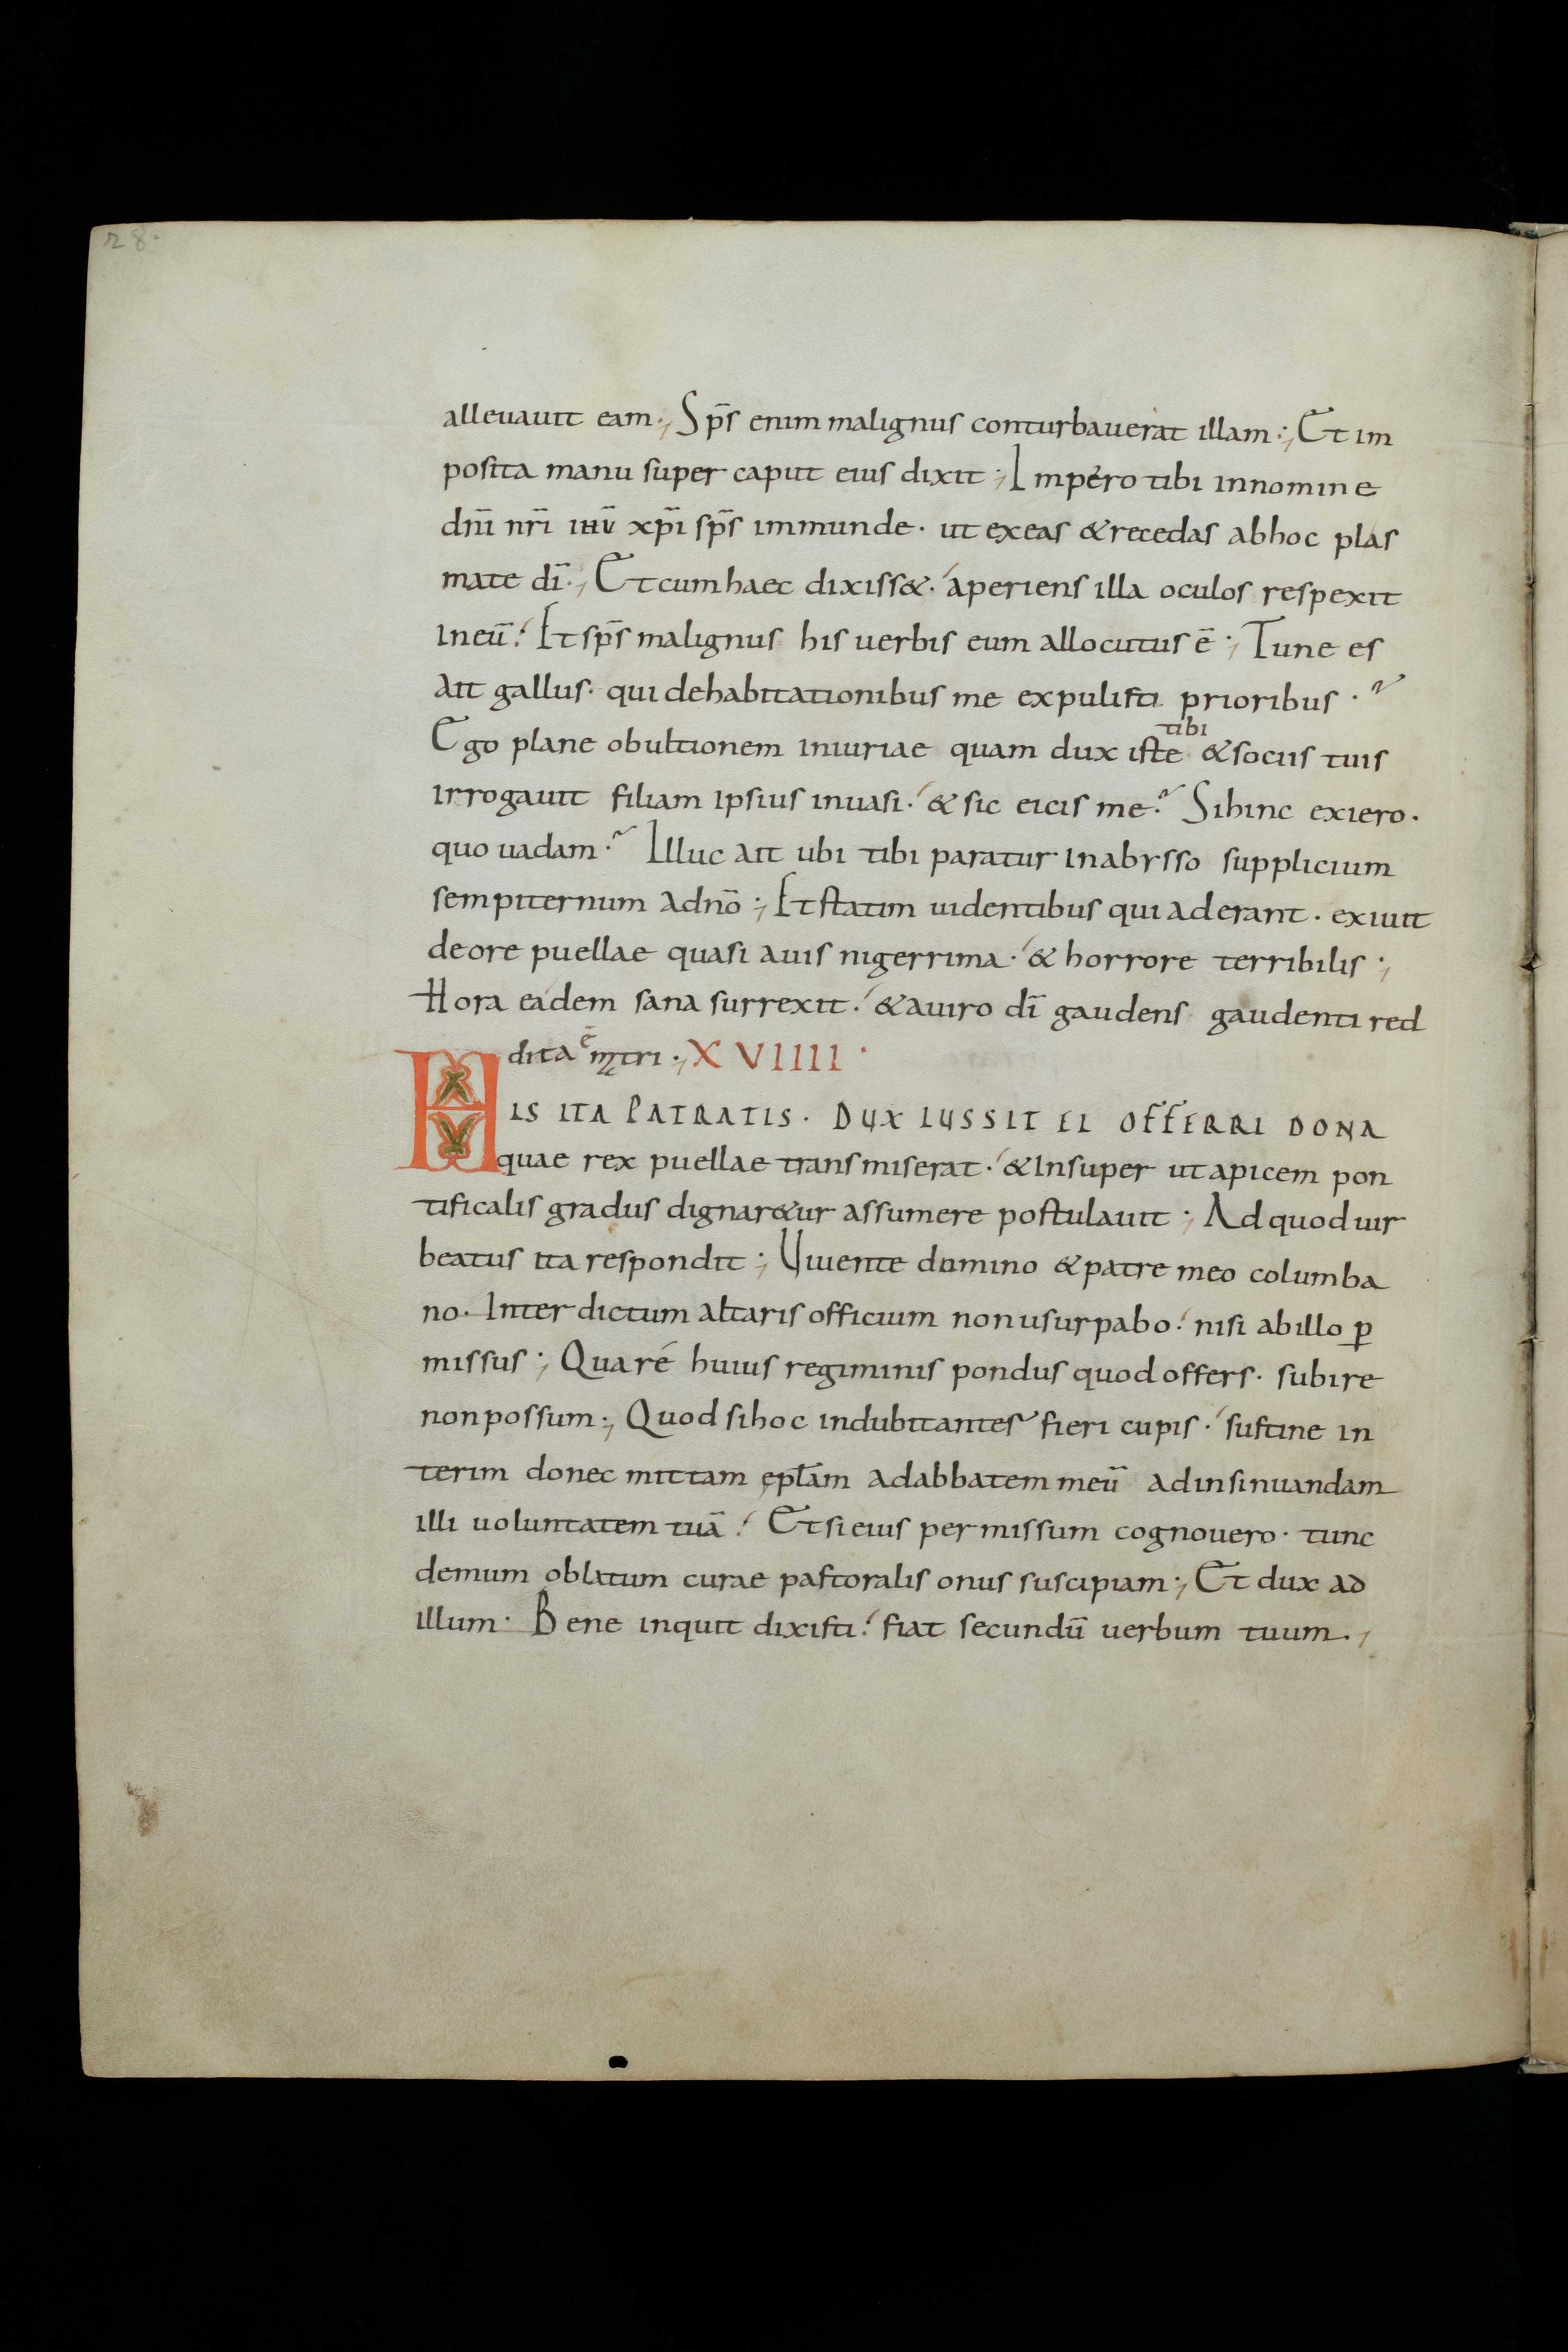 28.
alleuauit eam·, Sps̄ enim malignus conturbauerat illam:, Et im
posita manu super caput eius dixit; Impero tibi innomine
dnī nrī ihū xpī sps̄ immunde· ut exeas & recedas abhoc plas
mate dī·, Et cum haec dixiss&· aperiens illa oculos respexit
ineū! Et sps̄ malignus his uerbis eum allocutus ē; Tune es
ait gallus· qui dehabitationibus me expulisti prioribus·?
tibi
Ego plane obultionem iniuriae quam dux iste & sociis tuis
irrogauit filiam ipsius inuasi·́ & sic eicis me? Sihinc exiero·
quo uadam? Illuc ait ubi tibi paratur inabysso supplicium
sempiternum adnō; Et statim uidentibus qui aderant· exiuit
deore puellae quasi auis nigerrima·́ & horrore terribilis;
Hora eadem sana surrexit·́ & auiro dī gaudens gaudenti red
dita ē mtri·, XVIIII·
HIS ITA PATRATIS· DUX IUSSIT EI OFFERRI DONA
quae rex puellae transmiserat·́ & Insuper ut apicem pon
tificalis gradus dignar&ur assumere postulauit; Ad quod uir
beatus ita respondit; Uiuente domino & patre meo columba
no· Inter dictum altaris officium non usurpabo! nisi abillo ꝑ
missus; Quaré huius regiminis pondus quod offers· subire
non possum·, Quod si hoc indubitantes fieri cupis·́ sustine in
terim donec mittam ępłam adabbatem meū adinsinuandam
illi uoluntatem tuā! Et si eius permissum cognouero· tunc
demum oblatum curae pastoralis onus suscipiam·, Et dux ad
illum· Bene inquit dixisti! fiat secundū uerbum tuum·,